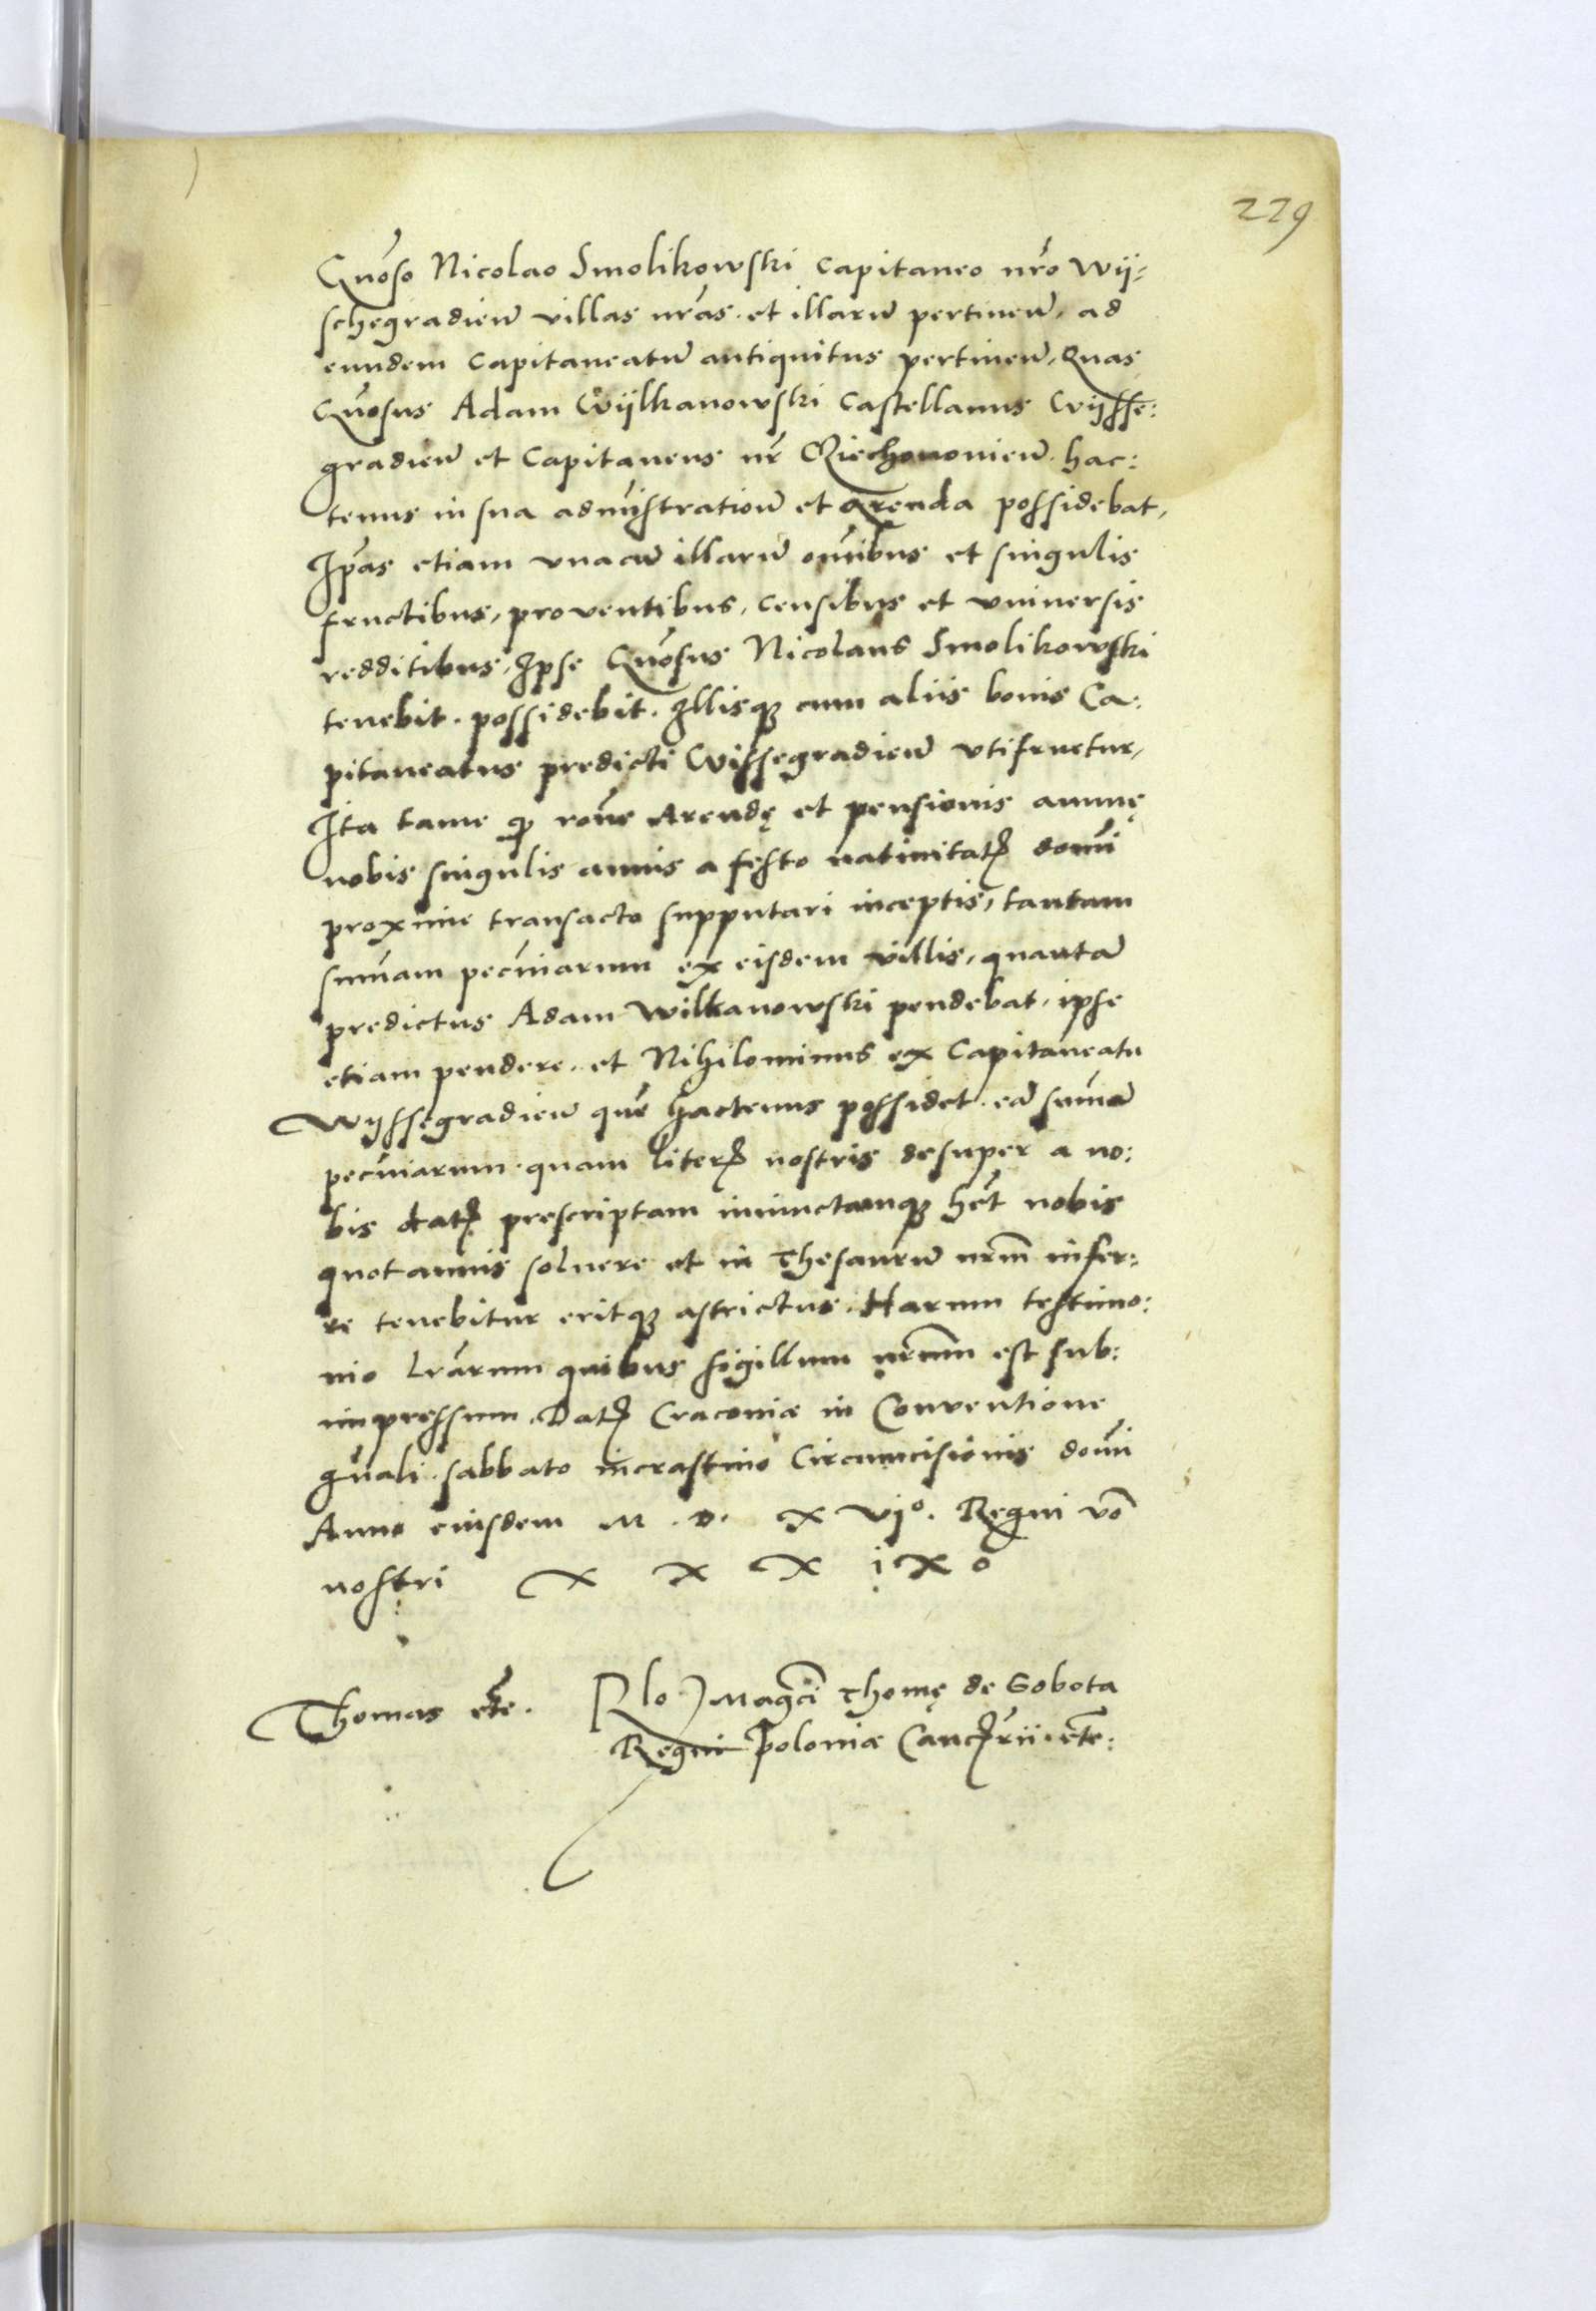 229
Gn̄oso Nicolao Smolikowski capitaneo nr̄o Wij-
schegradien̄ villas nr̄as. et illarū pertinen̄, ad
eundem capitaneatū antiquitus pertinen̄, Quas
Gn̄osus Adam Wijlkanowski Castellanus Wijsse:
gradien̄ et Capitaneus nr̄ Ciechanonien̄. hac:
tenus in sua adm̄istration̄ et arenda possidebat,
Ip̄as etiam vnacū illarū om̄ibus et singulis
fructibus, proventibus, censibus et vniversis
redditibus, Ipse Gn̄osus Nicolaus Smolikowski
tenebit. possidebit. Illisqꝫ cum aliis bonis Ca:
pitaneatus predicti Wissegradien̄ vtifruetur,
Ita tame ꝙ rōne Arendę et pensionis annuę
nobis singulis annis a festo natiuitatꝭ domī
proxime transacto supputari inceptis, tantam
sum̄am pecūiarum ex eisdem villis, quantā
predictus Adam Wilkanowski pendebat, ipse
etiam pendere. et Nihilominus ex Capitaneatu
Wijssegradien̄ quē hactenus possidet. eā sum̄ā
pecūiarum. quam literꝭ nostris desuper a no:
bis datꝭ prescriptam iniunctamqꝫ hēt nobis
quotannis soluere et in Thesaurū nrm̄ infer:
re tenebitur eritqꝫ astrictus. Harum testimo:
nio Lrārum quibus sigillum nrmm̄ est sub:
impressum. Datꝭ Cracoviæ in Conventione
gn̄ali. sabbato incrastino Circumcisionis domī
Anno eiusdem M. D. X Vjº. Regni vō
nostri X X X i X o
Thomas etc̄. Rlo Magc̄i Thomę de Sobota
Regni Poloniæ Cancꝭrii. etc̄: